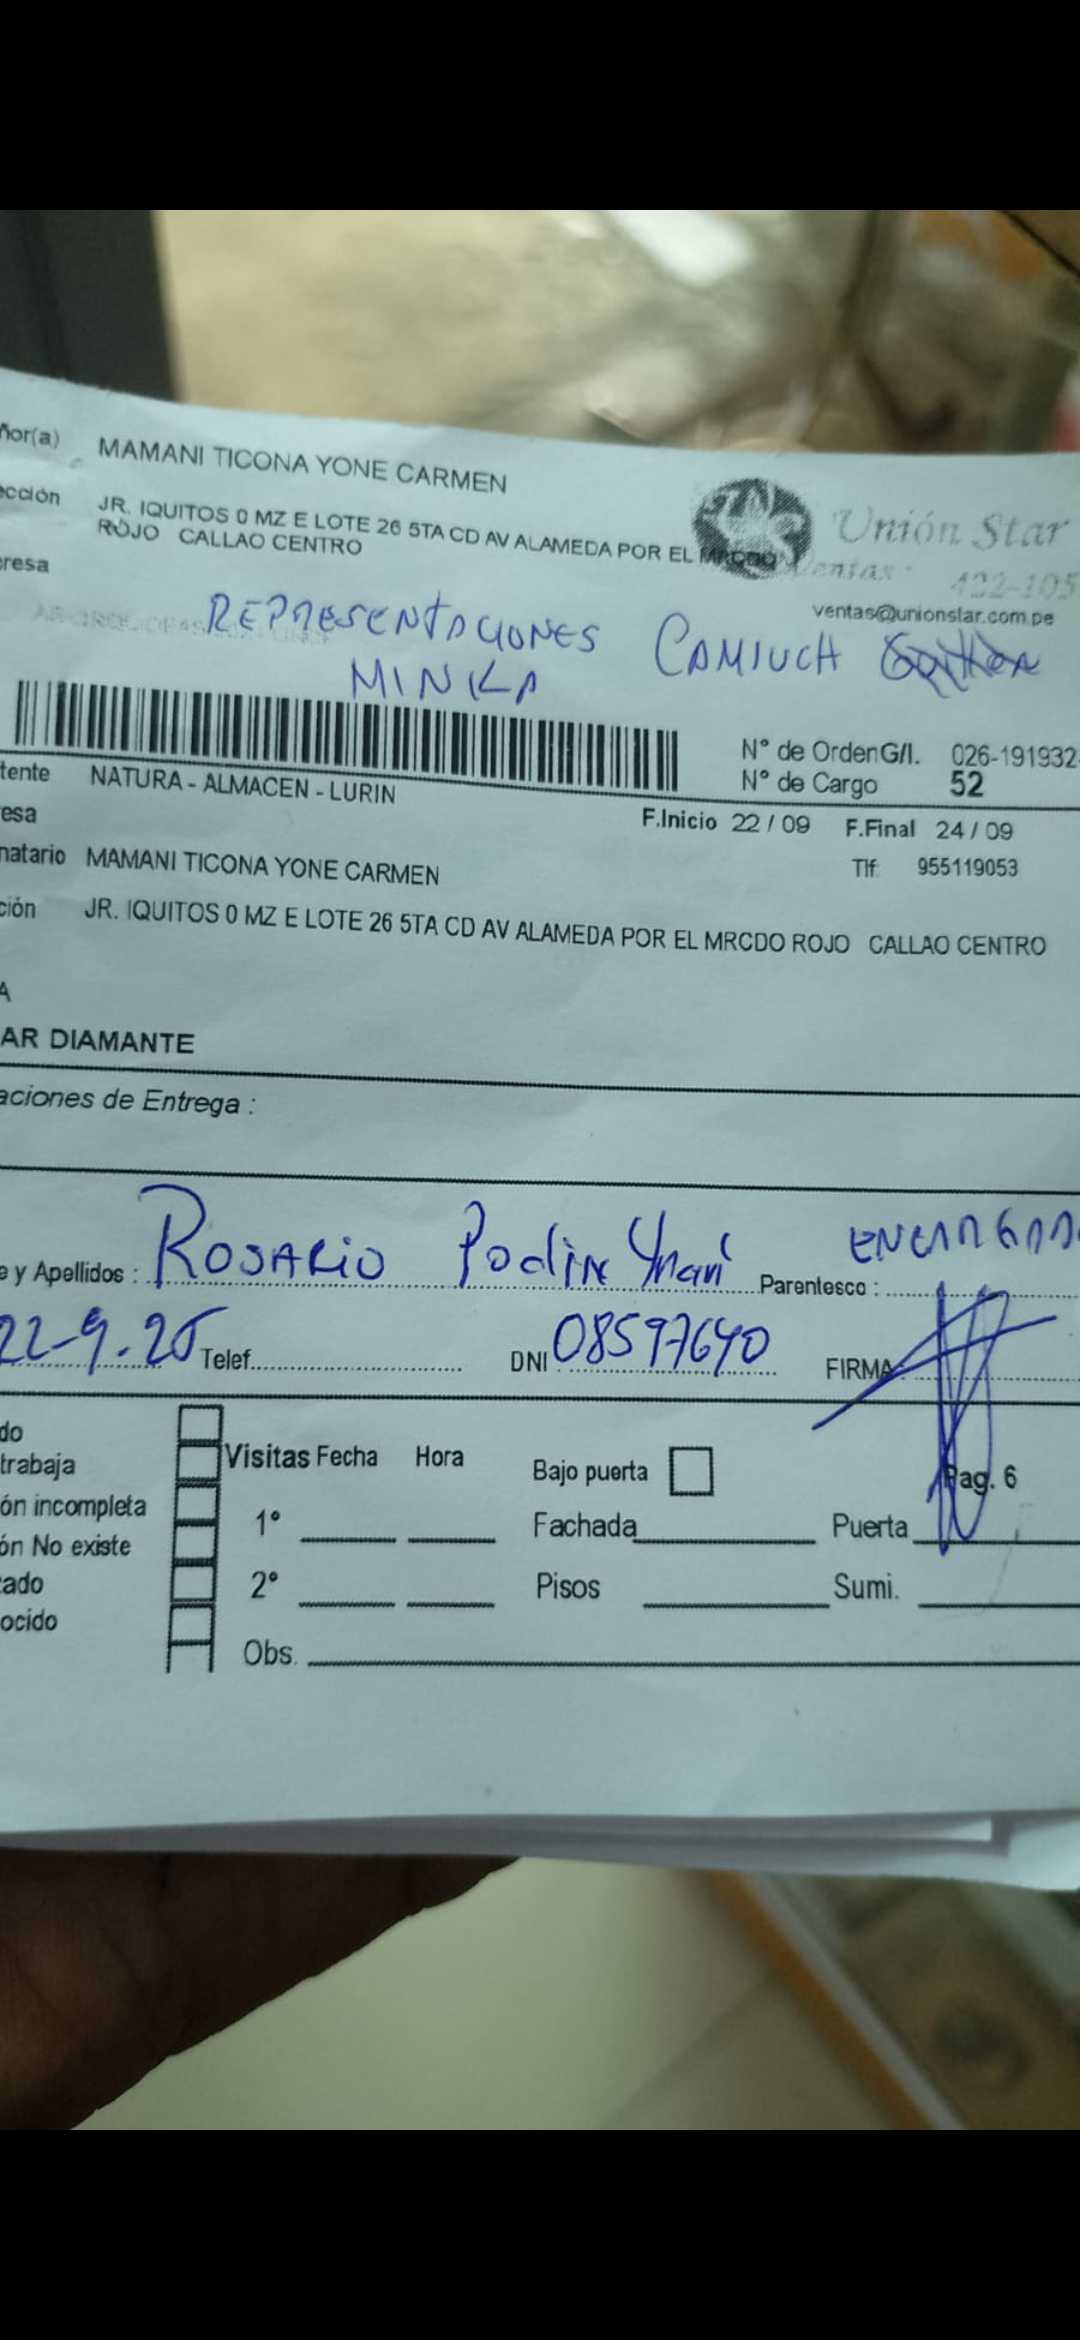 ñor(a) MAMANI TICONA YONE CARMEN
ección JR. IQUITOS 0 MZ E LOTE 26 5TA CD AV ALAMEDA POR EL MRCDO
ROJO CALLAO CENTRO
Unión Star
Ventas: 422-105
ventas@unionstar.com.pe
resa
REPRESENTACIONES CAMIUCH
MINKA
N° de OrdenG/I. 026-191932
N° de Cargo 52
tente NATURA - ALMACEN - LURIN
esa
F.Inicio 22 / 09 F.Final 24 / 09
natario MAMANI TICONA YONE CARMEN
Tlf. 955119053
ción JR. IQUITOS 0 MZ E LOTE 26 5TA CD AV ALAMEDA POR EL MRCDO ROJO CALLAO CENTRO
A
AR DIAMANTE
aciones de Entrega :
e y Apellidos : ROSARIO Parentesco : ENCARGADA
22-9-25 Telef. DNI 08597640 FIRMA:
do
trabaja
ón incompleta
ón No existe
ado
ocido
Visitas Fecha Hora
1°
2°
Obs.
Bajo puerta
Pag. 6
Fachada Puerta
Pisos Sumi.